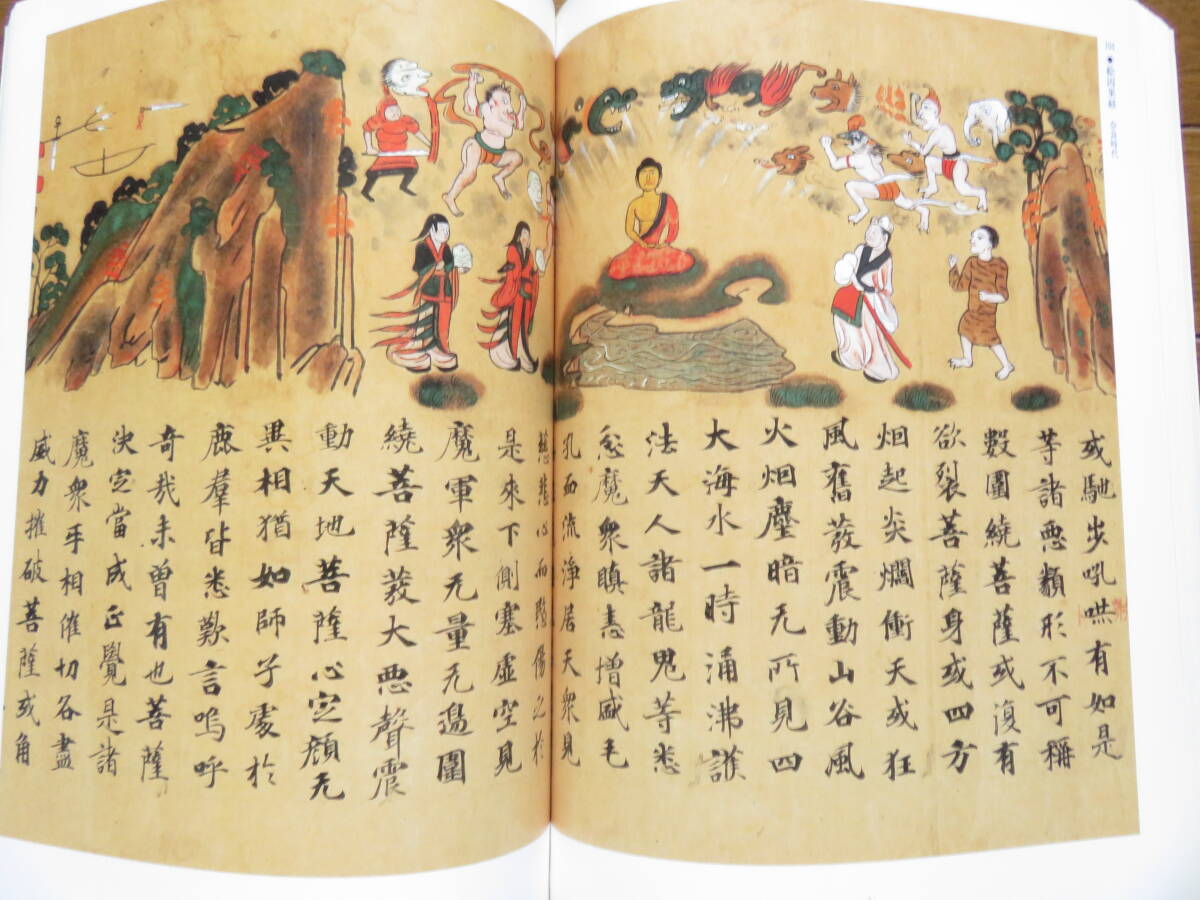 絵因果経 奈良時代
或馳步吼哄有如是
等諸悪類形不可稱
數圍繞菩薩或復有
欲裂菩薩身或四方
烟起炎爛衝天或狂
風奮發震動山谷風
火烟塵暗无所見四
大海水一時涌沸護
法天人諸龍鬼等悉
忿魔衆瞋恚增盛毛
孔血流淨居天衆見
慈悲心而愍傷之於
是來下側塞虛空見
魔軍衆无量无邊圍
繞菩薩發大悪聲震
動天地菩薩心定顏无
異相猶如師子處於
鹿羣皆悉歎言嗚呼
奇哉未曾有也菩薩
決定當成正覺是諸
魔衆手相催切各盡
威力摧破菩薩或角